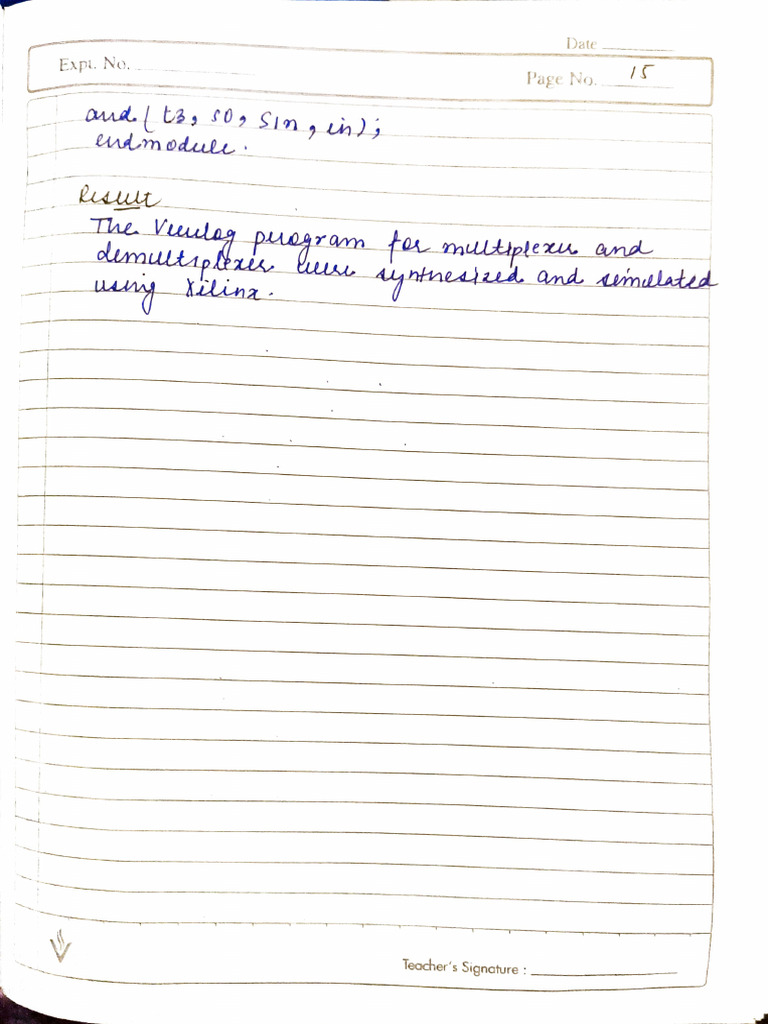 Date
Expt. No.
Page No. 15
and (t3, s0, s1n, in);
endmodule.
Result
The Verilog program for multiplexer and
demultiplexer were synthesized and simulated
using Xilinx.
Teacher's Signature :